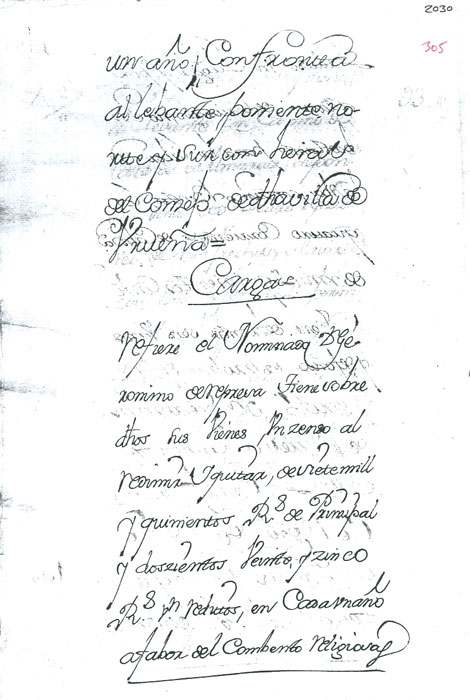 2030
305
un año Confronta
al lebante, poniente no-
rte y Sur con heredᵃˢ
del Comeß de dha villa de
Yruena =
Cargas
Refiere el Nominado Dn Ge-
ronimo de Tiene sobre
dhos sus Vienes, un Zenso al
redimir y quitar, de siete mill
y quinientos Rˢ de Prinzipal
y doszientos Veinte, y zinco
Rˢ de reditos, en Cada un año
afabor del Combento religiosas